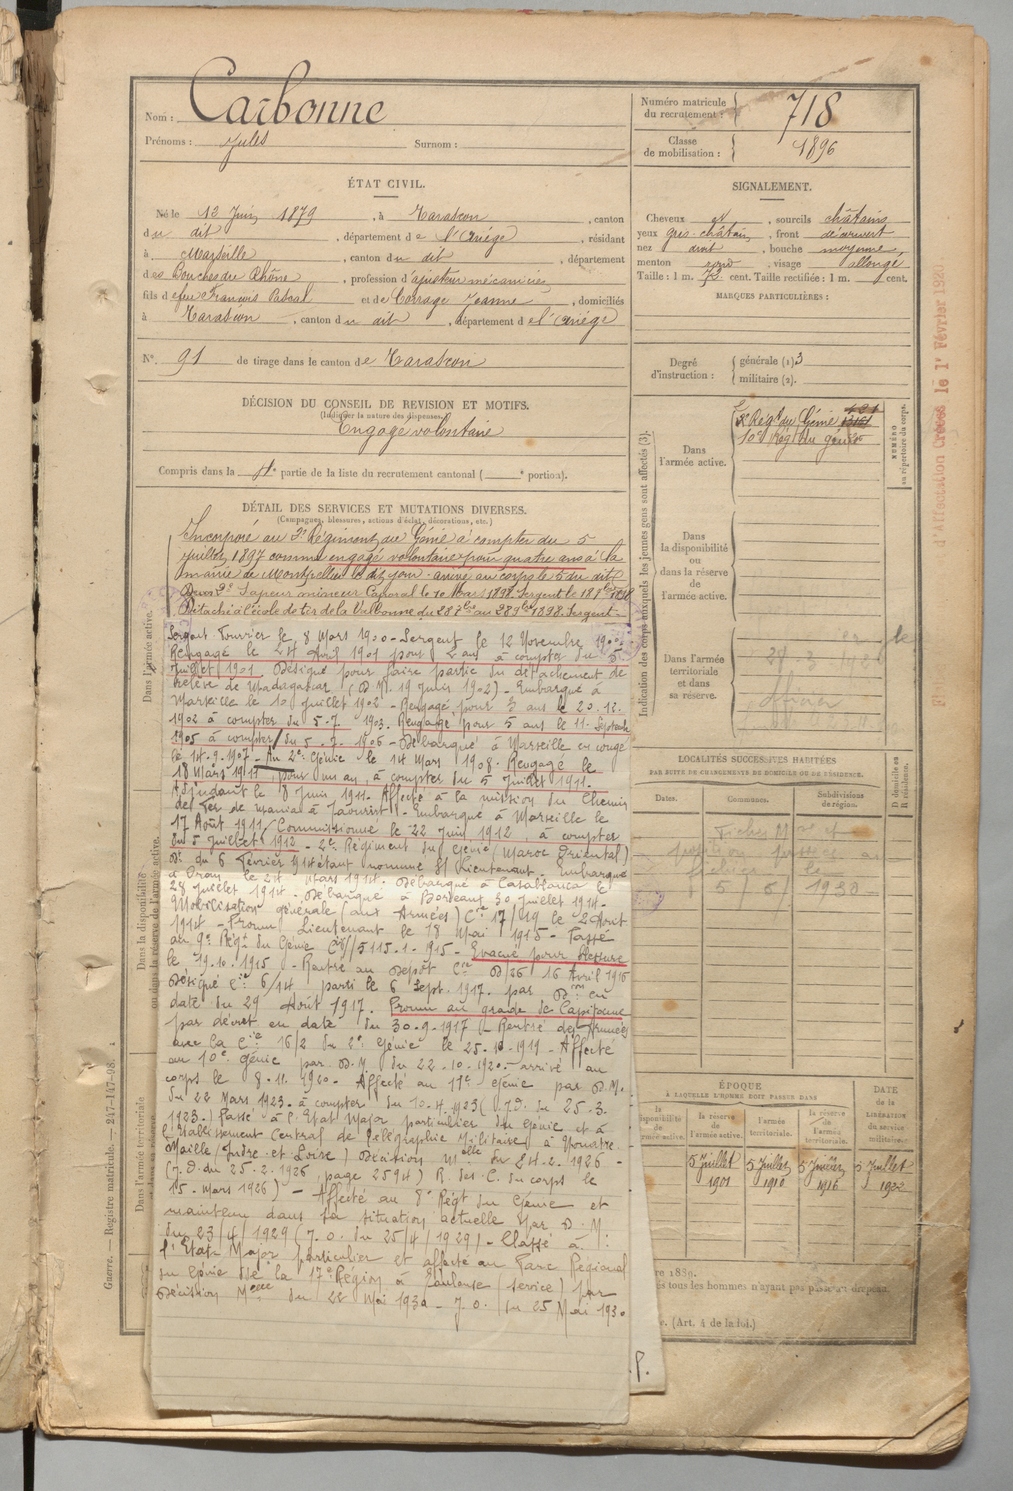 Nom : Carbonne
Prénoms : Jules Surnom :
Numéro matricule du recrutement : 718
Classe de mobilisation : 1896
ÉTAT CIVIL.
Né le 12 Juin 1879, à Tarascon, canton
du dit, département de l'Ariège, résidant
à Marseille, canton du dit, département
des Bouches du Rhône, profession d'ajusteur mécanicien
fils de feu François Pascal et de Carrage Jeanne, domiciliés
à Tarascon, canton du dit, département de l'Ariège
N° 91 de tirage dans le canton de Tarascon
SIGNALEMENT.
Cheveux et, sourcils châtains
yeux gris-châtain, front découvert
nez droit, bouche moyenne
menton rond, visage allongé
Taille : 1 m. 73 cent. Taille rectifiée : 1 m. cent.
MARQUES PARTICULIÈRES :
Degré d'instruction : générale (1) 3
militaire (2).
DÉCISION DU CONSEIL DE REVISION ET MOTIFS.
(Indiquer la nature des dispenses.)
Engagé volontaire
Compris dans la partie de la liste du recrutement cantonal ( portion).
DÉTAIL DES SERVICES ET MUTATIONS DIVERSES.
(Campagnes, blessures, actions d'éclat, décorations, etc.)
Incorporé au 2e Régiment du Génie à compter du 5
juillet 1897 comme engagé volontaire pour quatre ans à la
mairie de Montpellier le dit jour. arrivé au corps le 5 du dit
Sapeur mineur Caporal le 10 Mars 1898. Sergent le
Détaché à l'école de tir de la Valbonne du au 1898. Sergent
Sergent Fourrier le 8 Mars 1900 - Sergent le 12 Novembre 1900
Rengagé le 24 Avril 1901 pour 2 ans à compter du 5
Juillet 1901. Désigné pour faire partie du détachement de
relève de Madagascar (D.M. 19 Juin 1902) - Embarqué à
Marseille le 10 juillet 1902 - Rengagé pour 3 ans le 20.12.
1902 à compter du 5-7 1903. Rengagé pour 5 ans le 11 Septemb
1905 à compter du 5.7.1906 - Débarqué à Marseille en congé
le 14.9.1907 - Au 2e Génie le 14 Mars 1908. Rengagé le
18 Mars 1911, pour un an, à compter du 5 Juillet 1911.
Adjudant le 8 Juin 1911. Affecté à la mission du Chemin
de Fer de Marnia à Taourirt - Embarqué à Marseille le
17 Août 1911 / Commissionné le 22 Juin 1912, à compter
du 5 juillet 1912 - 2e Régiment du Génie (Maroc Oriental)
D. du 6 Février 914 étant nommé S/ Lieutenant. Embarqué
à Oran le 24 Mars 1914. Débarqué à Casablanca le
28 Juillet 1914 - Débarqué à Bordeaux 30 Juillet 1914 -
Mobilisation générale (aux Armées) Cie 17/19 le 2 Août
1914 - Promu Lieutenant le 18 Mai 1915 - Passé
au 9e Régt du Génie - Evacué pour blessure
le 19.10.1915 - Rentré au Dépôt Cie D/26 16 Avril 1916
Désigné Cie 6/14 parti le 6 Sept. 1917. par Don en
date du 29 Août 1917. Promu au grade de Capitaine
par décret en date du 30.9.1917 (Rentré des Armées
avec la Cie 16/2 du 2e Génie le 25.10.1919 - Affecté
au 10e Génie par D.M du 22.10.1920 - arrivé au
corps le 8.11.1920 - Affecté au 17e Génie par D.M.
du 22 Mars 1923. à compter du 10.4.1923 (J.O. du 25.3.
1923.) Passé à l'Etat Major particulier du Génie et à
l'Etablissement Central de Télégraphie Militaire à
Maille (Indre et Loire) Décision Mlle du 24.2.1926 -
(J.O. du 25.2.1926, page 2594) R. des C. du corps le
15. Mars 1926) - Affecté au 8e Régt du Génie et
maintenu dans sa situation actuelle par D.M:
du 23/4/1929 (J.O. du 25/4/1929) - Classé à
l'Etat-Major particulier et affecté au Parc Régional
du Génie de la 17e Région à Toulouse (service) par
Décision Melle du 22 Mai 1930 - J.O. du 25 Mai 1930
Indication des corps auxquels les jeunes gens sont affectés (3).
Dans l'armée active.
2e Régt du Génie
10e Régt du génie
NUMÉRO au répertoire du corps.
Dans la disponibilité ou dans la réserve de l'armée active.
Dans l'armée territoriale et dans sa réserve.
officier
LOCALITÉS SUCCESSIVES HABITÉES
PAR SUITE DE CHANGEMENTS DE DOMICILE OU DE RÉSIDENCE.
Dates. Communes. Subdivisions de région. D domicile ou R résidence.
5/6/1930
ÉPOQUE
À LAQUELLE L'HOMME DOIT PASSER DANS
la réserve de l'armée active. l'armée territoriale. la réserve de l'armée territoriale.
DATE de la LIBÉRATION du service militaire.
5 Juillet 1901
5 Juillet 1910
5 Juillet 1916
5 Juillet 1922
(Art. 4 de la loi.)
Dans l'armée active.
Dans la disponibilité ou dans la réserve de l'armée active.
Dans l'armée territoriale
Guerre. — Registre matricule. — 247-147-98.
d'Affectation Créées le 1er Février 1920.